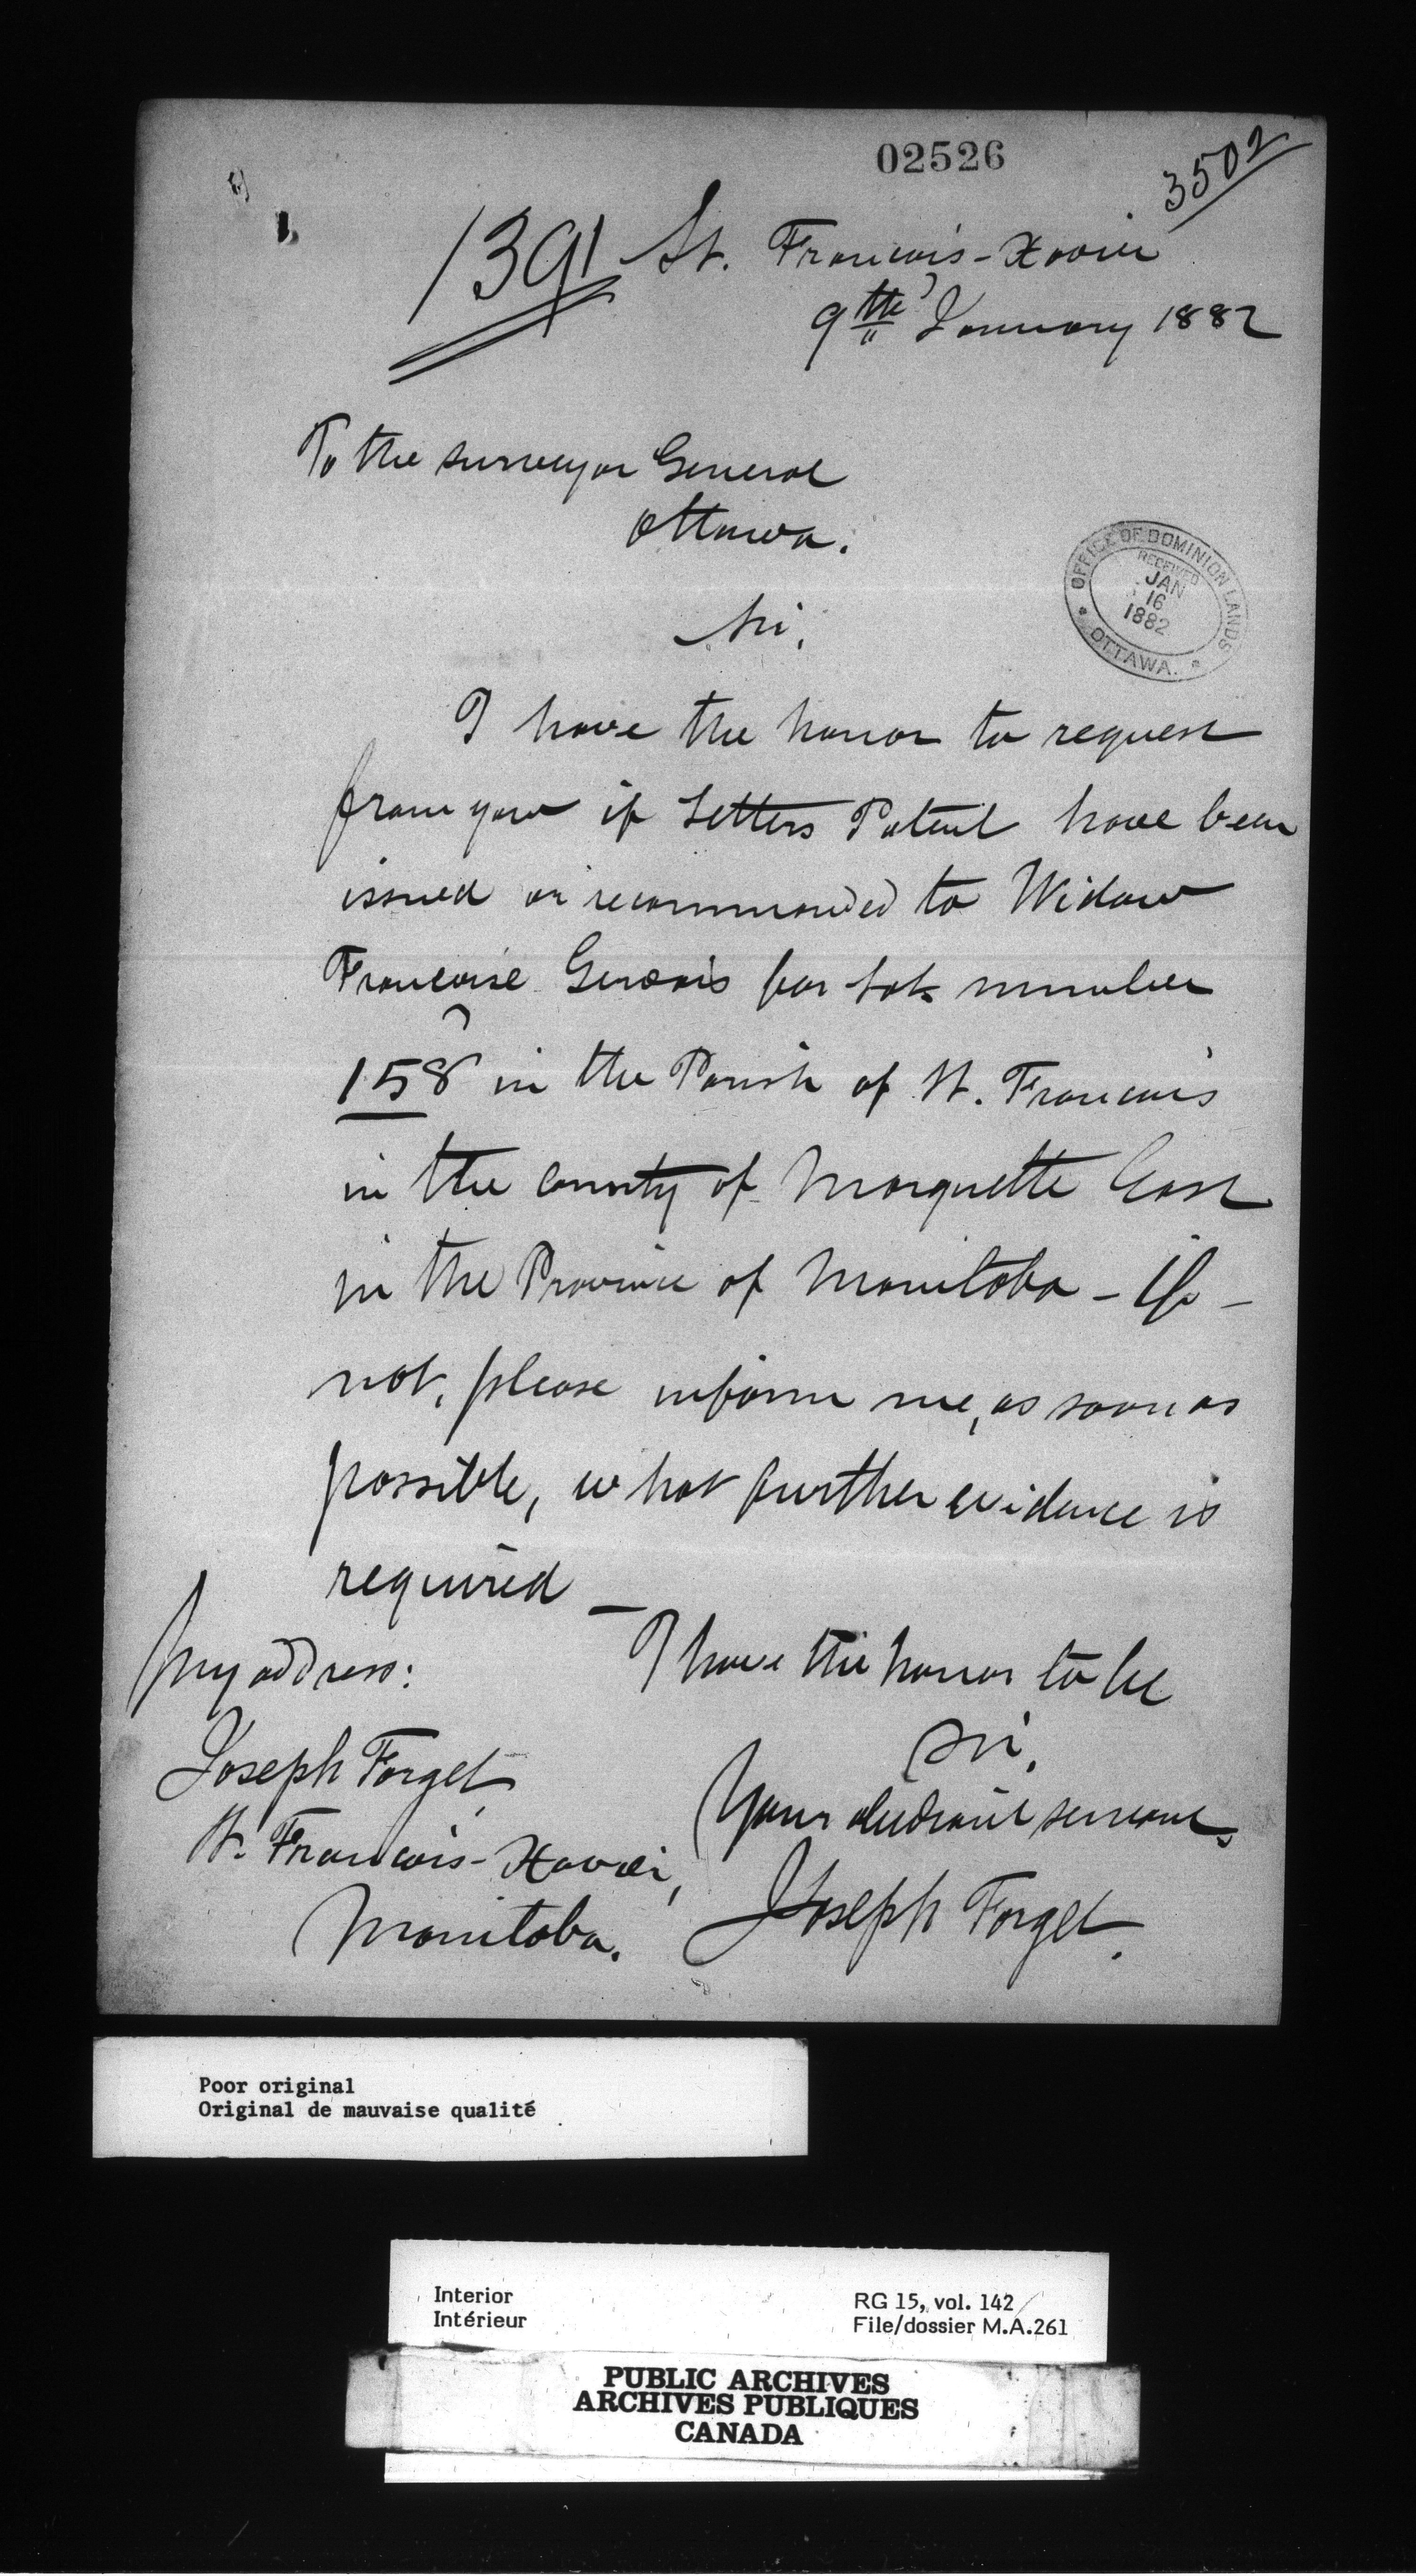 02526
3502
1391 St. François-Xavier
9th January 1882
To the Surveyor General
Ottawa.
OFFICE OF DOMINION LANDS
RECEIVED
JAN
16
1882
* OTTAWA. *
Sir,
I have the honor to request
from you if Letters Patent have been
issued or recommended to Widow
Françoise Gervais for Lot number
158 in the Parish of St. François
in the County of Marquette East
in the Province of Manitoba - If -
not, please inform me, as soon as
possible, what further evidence is
required _
I have the honor to be
Sir,
Your obedient servant,
Joseph Forget.
My address:
Joseph Forget,
St. François-Xavier,
Manitoba.
Poor original
Original de mauvaise qualité
Interior
Intérieur
RG 15, vol. 142
File/dossier M.A.261
PUBLIC ARCHIVES
ARCHIVES PUBLIQUES
CANADA